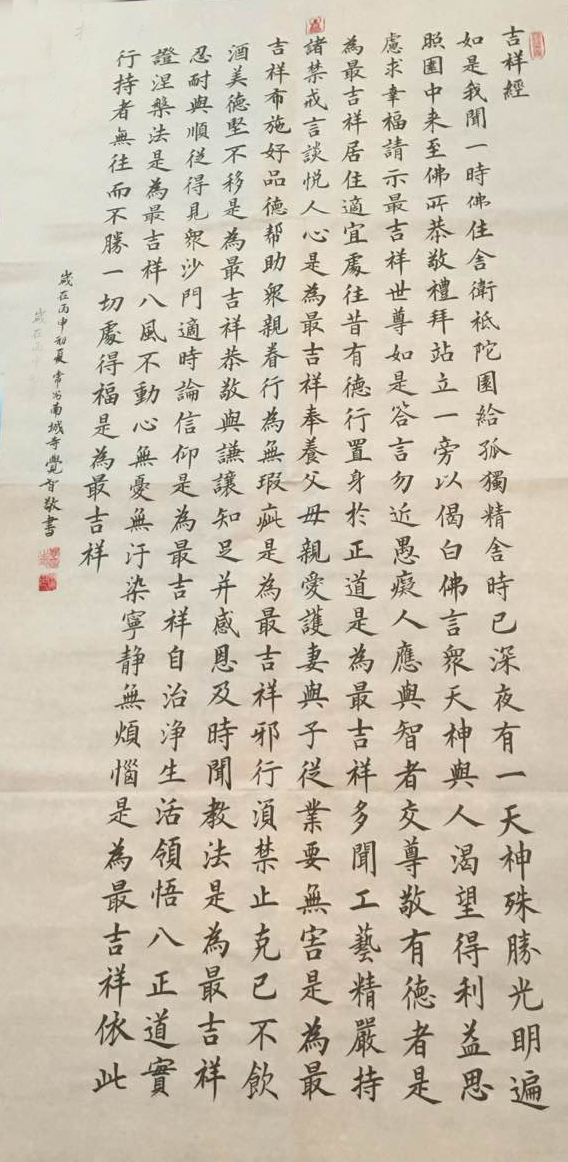 吉祥經
如是我聞一時佛住舍衛祇陀園給孤獨精舍時已深夜有一天神殊勝光明遍
照園中来至佛所恭敬禮拜站立一旁以偈白佛言衆天神與人渴望得利益思
慮求幸福請示最吉祥世尊如是答言勿近愚癡人應與智者交尊敬有德者是
為最吉祥居住適宜處往昔有德行置身於正道是為最吉祥多聞工藝精嚴持
諸禁戒言談悅人心是為最吉祥奉養父母親愛護妻與子從業要無害是為最
吉祥布施好品德帮助衆親眷行為無瑕疵是為最吉祥邪行須禁止克己不飲
酒美德堅不移是為最吉祥恭敬與謙讓知足并感恩及時聞教法是為最吉祥
忍耐與順從得見衆沙門適時論信仰是為最吉祥自治淨生活領悟八正道實
證涅槃法是為最吉祥八風不動心無憂無汙染寧静無煩惱是為最吉祥依此
行持者無往而不勝一切處得福是為最吉祥
歲在丙申初夏常 南城寺覺 敬書